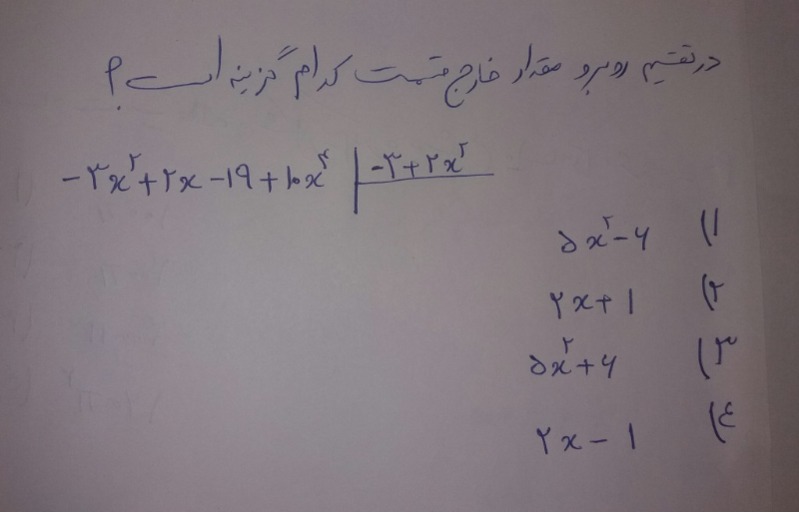 در تقسیم روبرو مقدار خارج قسمت کدام گزینه است؟
-۳x^۲+۲x-۱۹+۱۰x^۴ | -۳+۲x^۲
۱) ۵x^۲-۶
۲) ۲x+۱
۳) ۵x^۲+۶
٤) ۲x-۱